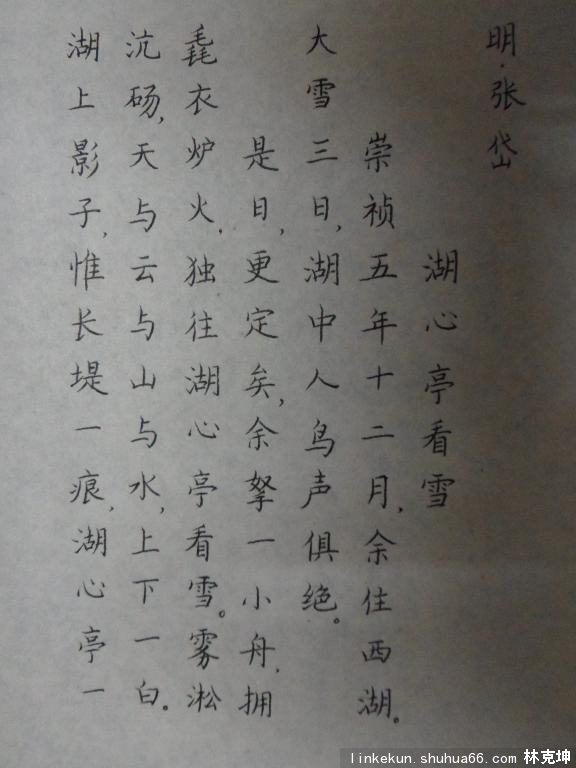 明·张岱
湖心亭看雪
崇祯五年十二月,余住西湖。
大雪三日,湖中人鸟声俱绝。
是日,更定矣,余拏一小舟,拥
毳衣炉火,独往湖心亭看雪。雾凇
沆砀,天与云与山与水,上下一白。
湖上影子,惟长堤一痕,湖心亭一
linkekun.shuhua66.com 林克坤